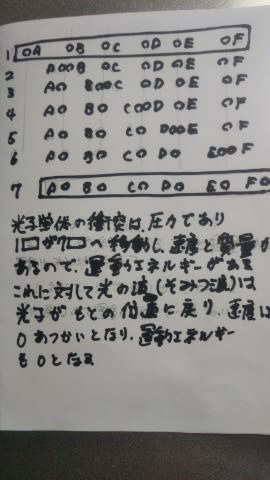 1 oA oB oC oD oE oF
2 Aoo B oC oD oE oF
3 Ao Booc oD oE oF
4 Ao Bo CooD oE oF
5 Ao Bo Co DooE oF
6 Ao Bo Co Do EooF
7 Ao Bo Co Do Eo Fo
光子単体の衝突は、圧力であり
1□が7□へ移動し、速度と質量が
あるので、運動エネルギーがある
これに対して光の波(そみつ波)は
光子がもとの位置に戻り、速度は
0あつかいとなり、運動エネルギー
も0となる